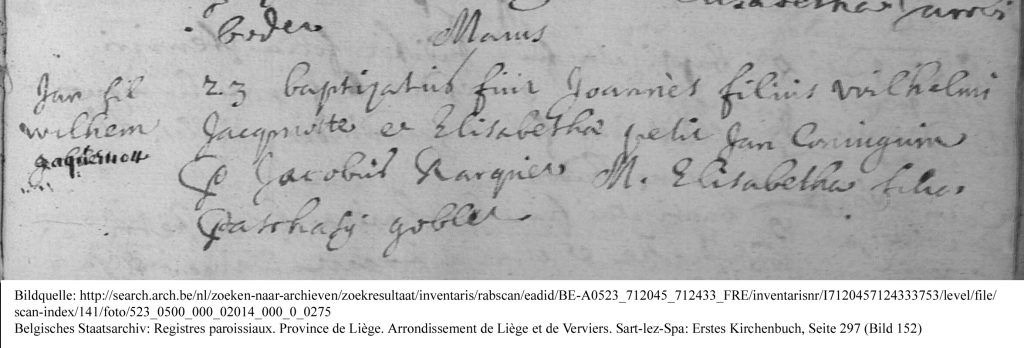 Elisabetha
boder
Maius
Jan fil
wilhem
Jaquemott
23 baptizatus fuit Joannes filius wilhelmi
Jacqmotte et Elisabethæ petit Jan
P Jacobus M. Elisabetha filia
Paschasij goblet
Bildquelle: http://search.arch.be/nl/zoeken-naar-archieven/zoekresultaat/inventaris/rabscan/eadid/BE-A0523_712045_712433_FRE/inventarisnr/I7120457124333753/level/file/
scan-index/141/foto/523_0500_000_02014_000_0_0275
Belgisches Staatsarchiv: Registres paroissiaux. Province de Liège. Arrondissement de Liège et de Verviers. Sart-lez-Spa: Erstes Kirchenbuch, Seite 297 (Bild 152)